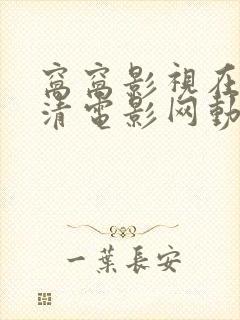 窩窩影視在
清電影网動
一葉長安